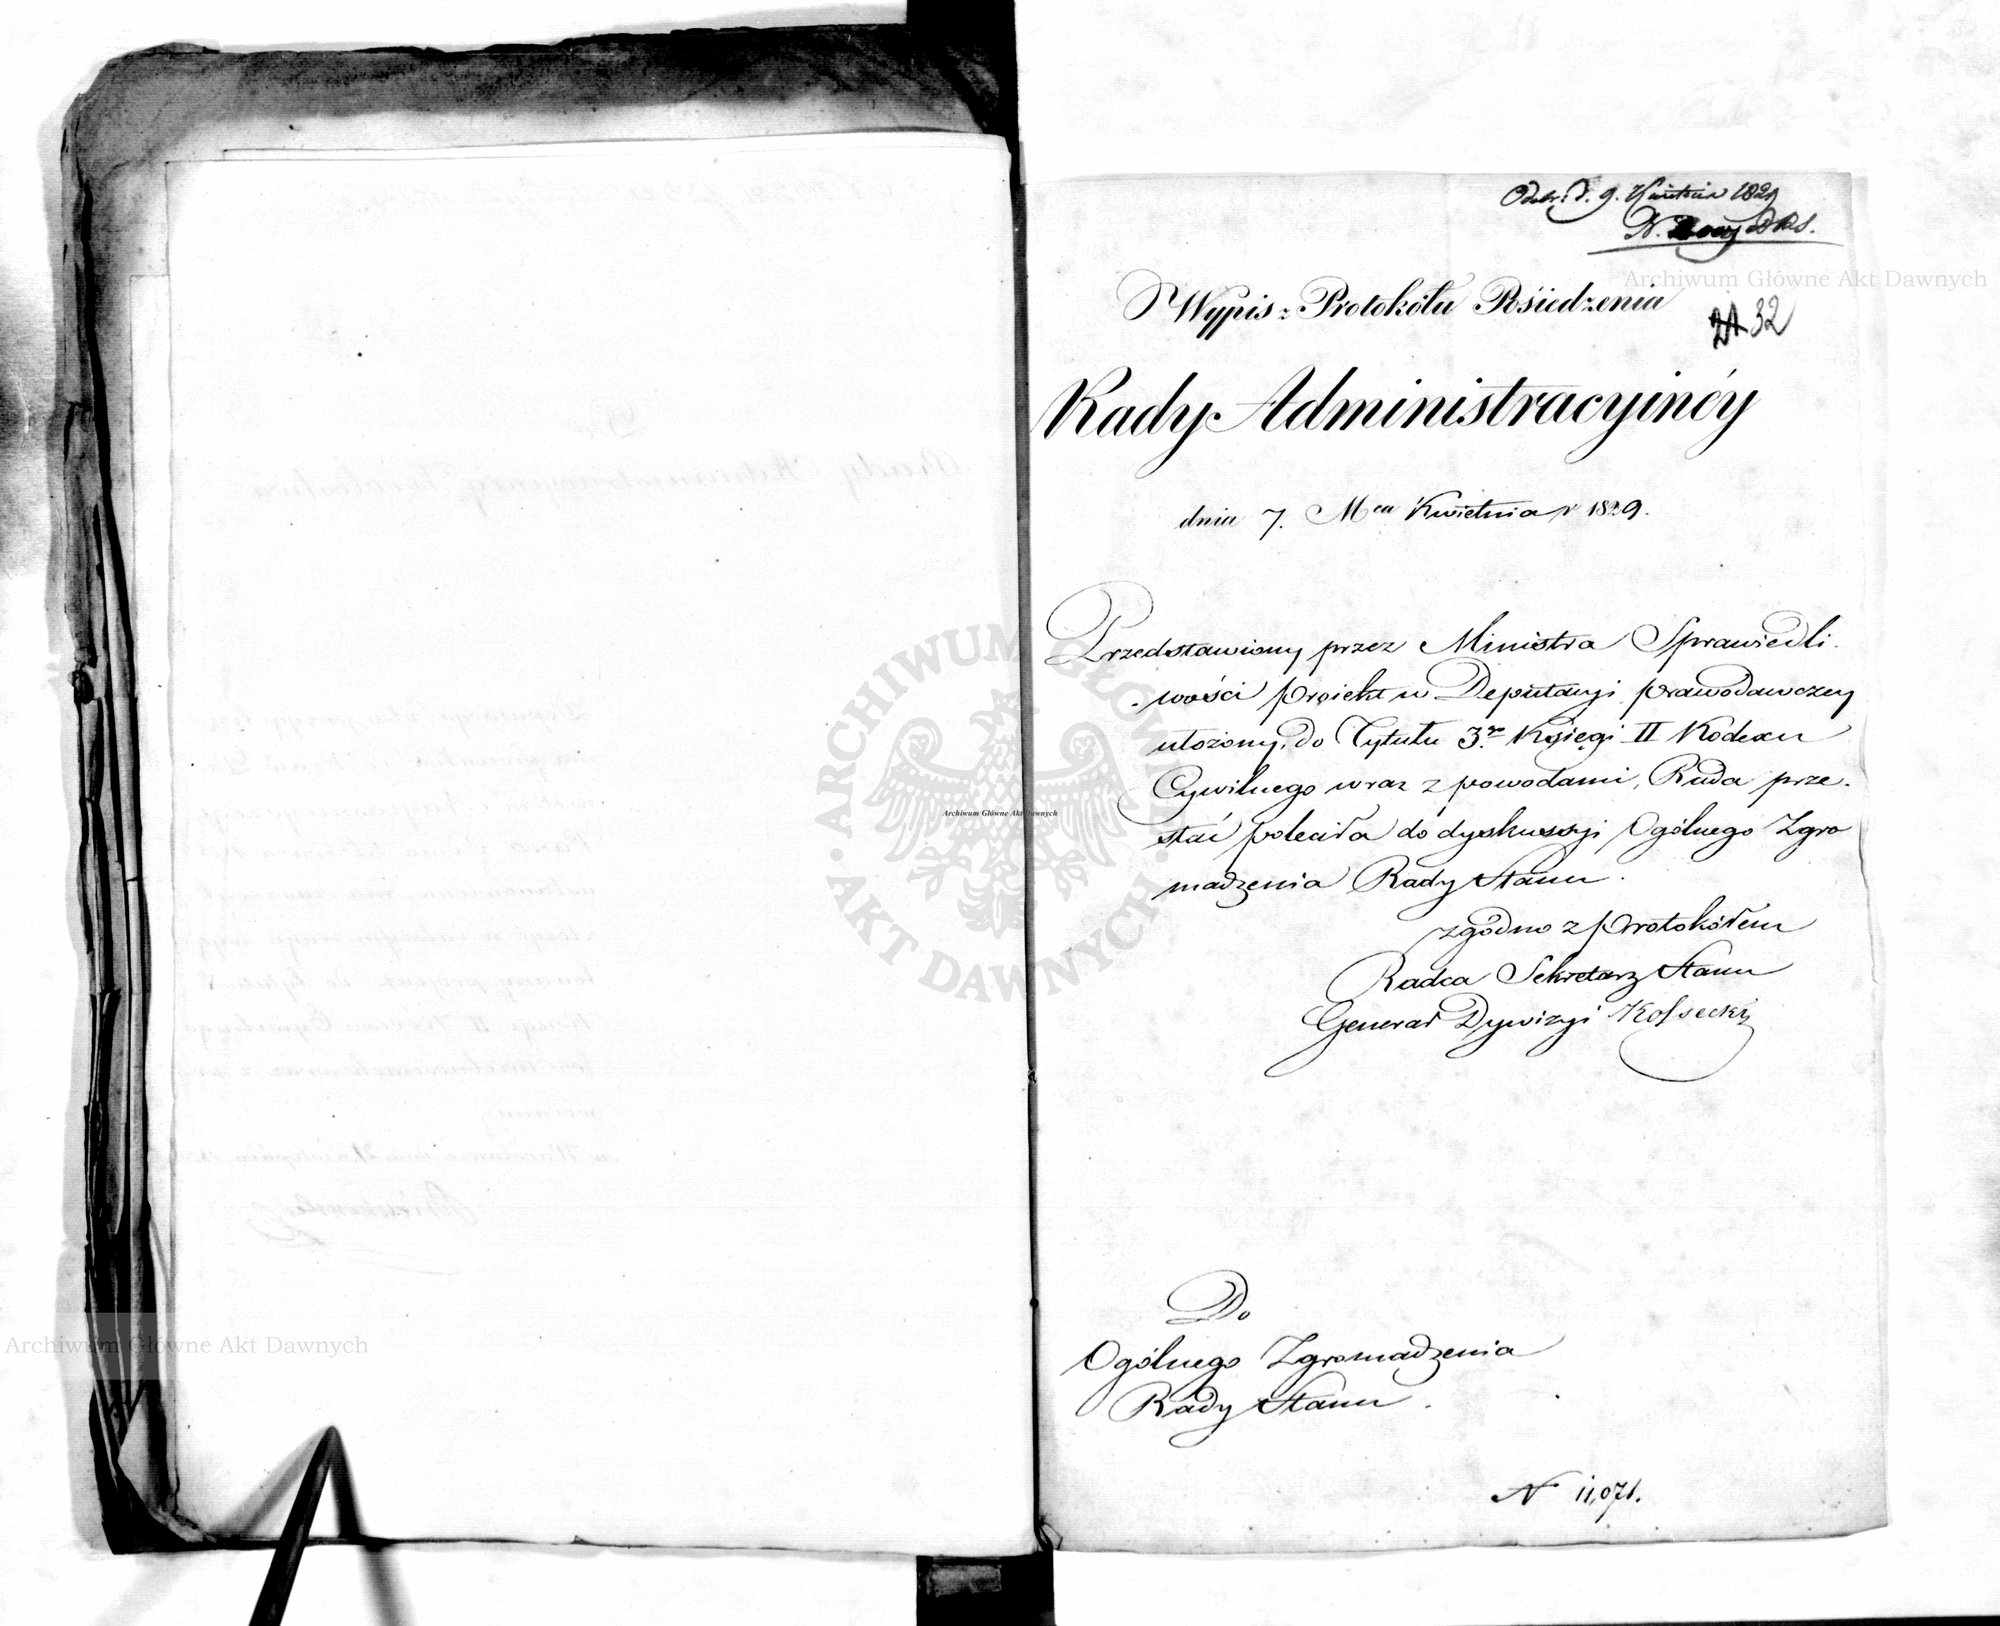 Odebr: d. 9. Kwietnia 1829
Wypis z Protokółu Posiedzenia
32
Rady Administracyinéy
dnia 7. Mca Kwietnia r 1829.
Przedstawiony przez Ministra Sprawiedli.
wości proiekt w Deputacyi prawodawczey
ułożony, do Tytułu 3.go Księgi II Kodexu
Cywilnego wraz z powodami, Rada prze.
słać poleciła do dyskussyi Ogólnego Zgro
madzenia Rady Stanu.
zgodno z protokółem
Radca Sekretarz Stanu
Generał Dywizyi Kossecki
Do
Ogólnego Zgromadzenia
Rady Stanu.
N 11,071.
Archiwum Główne Akt Dawnych
Archiwum Główne Akt Dawnych
Archiwum Główne Akt Dawnych
ARCHIWUM GŁÓWNE
AKT DAWNYCH